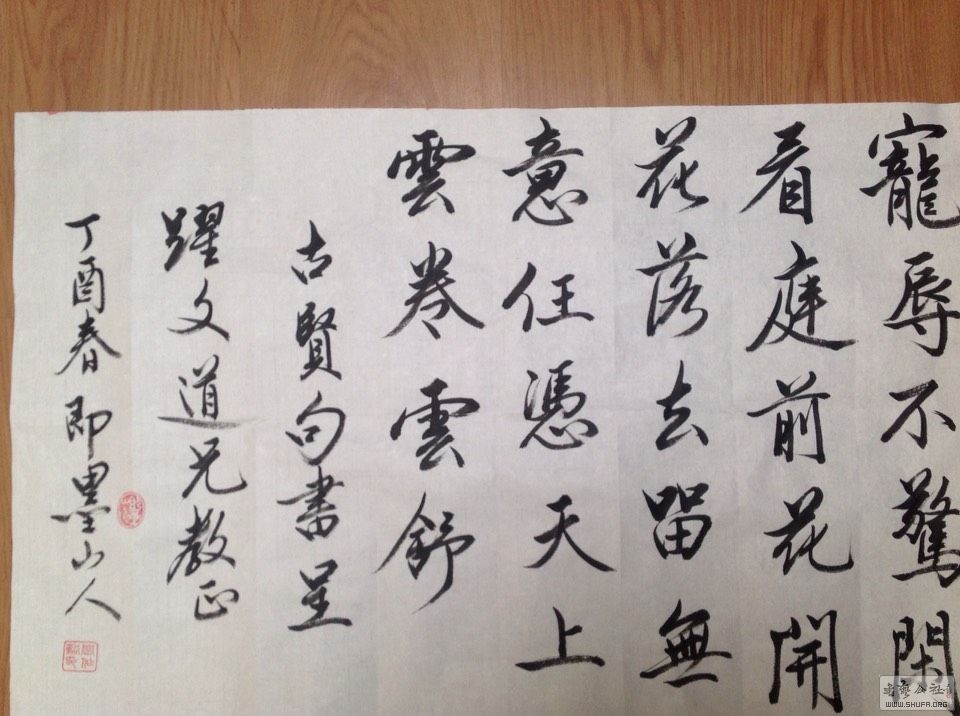 寵辱不驚閑
看庭前花開
花落去留無
意任憑天上
雲卷雲舒
古賢句書呈
躍文道兄教正
丁酉春即墨山人
書藝公社
WWW.SHUFA.ORG